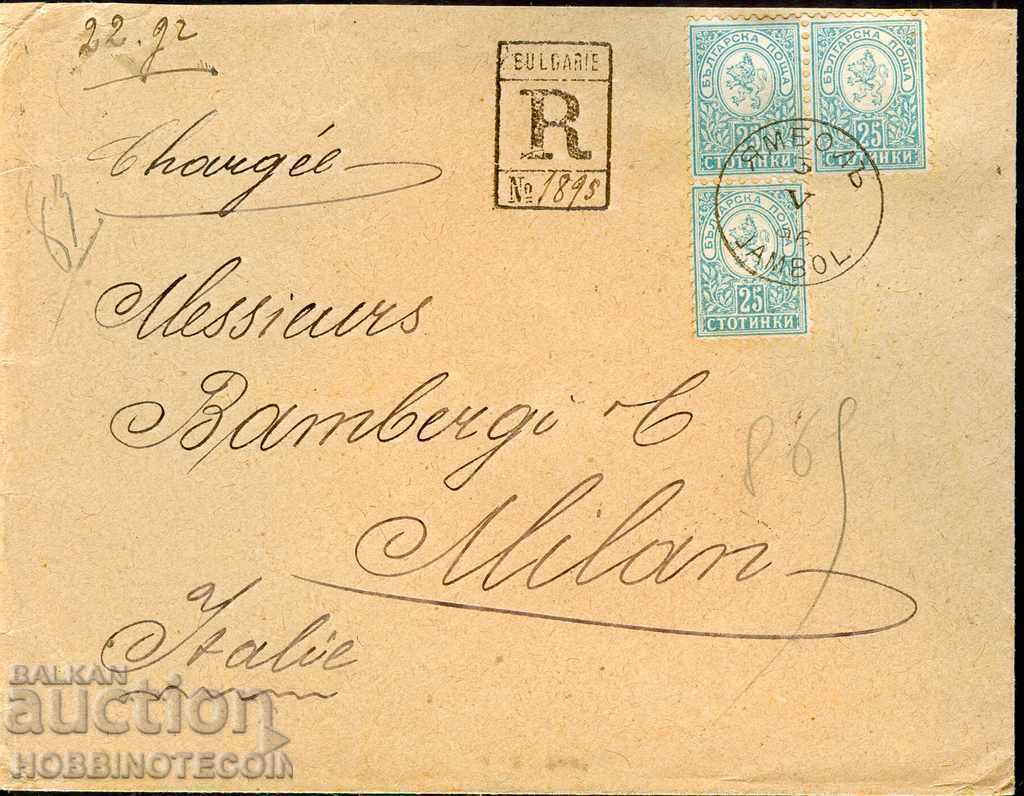 22. gr
Chargée
BULGARIE
R
No 1895
БЪЛГАРСКА ПОЩА
25
СТОТИНКИ
БЪЛГАРСКА ПОЩА
25
СТОТИНКИ
БЪЛГАРСКА ПОЩА
25
СТОТИНКИ
V
JAMBOL
Messieurs
Bambergi C
Milan
Italie
BALKAN
auction
HOBBINOTECOIN